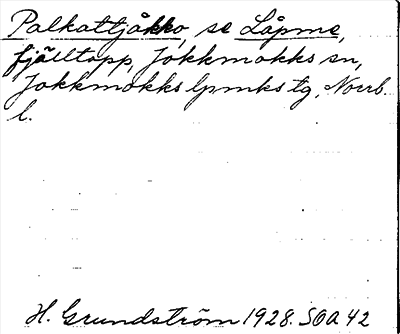 Palkattjåkko, se Låpme,
fjälltopp, Jokkmokks sn,
Jokkmokks lpmks tg, Norrb.
l.
H. Grundström 1928. SOA 42